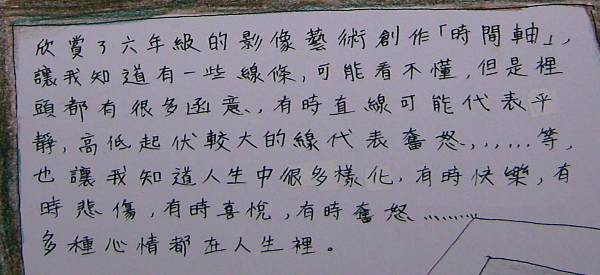 欣賞了六年級的影像藝術創作「時間軸」,
讓我知道有一些線條,可能看不懂,但是裡
頭都有很多函意、,有時直線可能代表平
靜,高低起伏較大的線代表奮怒,,,,...等,
也讓我知道人生中很多樣化,有時快樂,有
時悲傷,有時喜悅,有時奮怒………
多種心情都在人生裡。